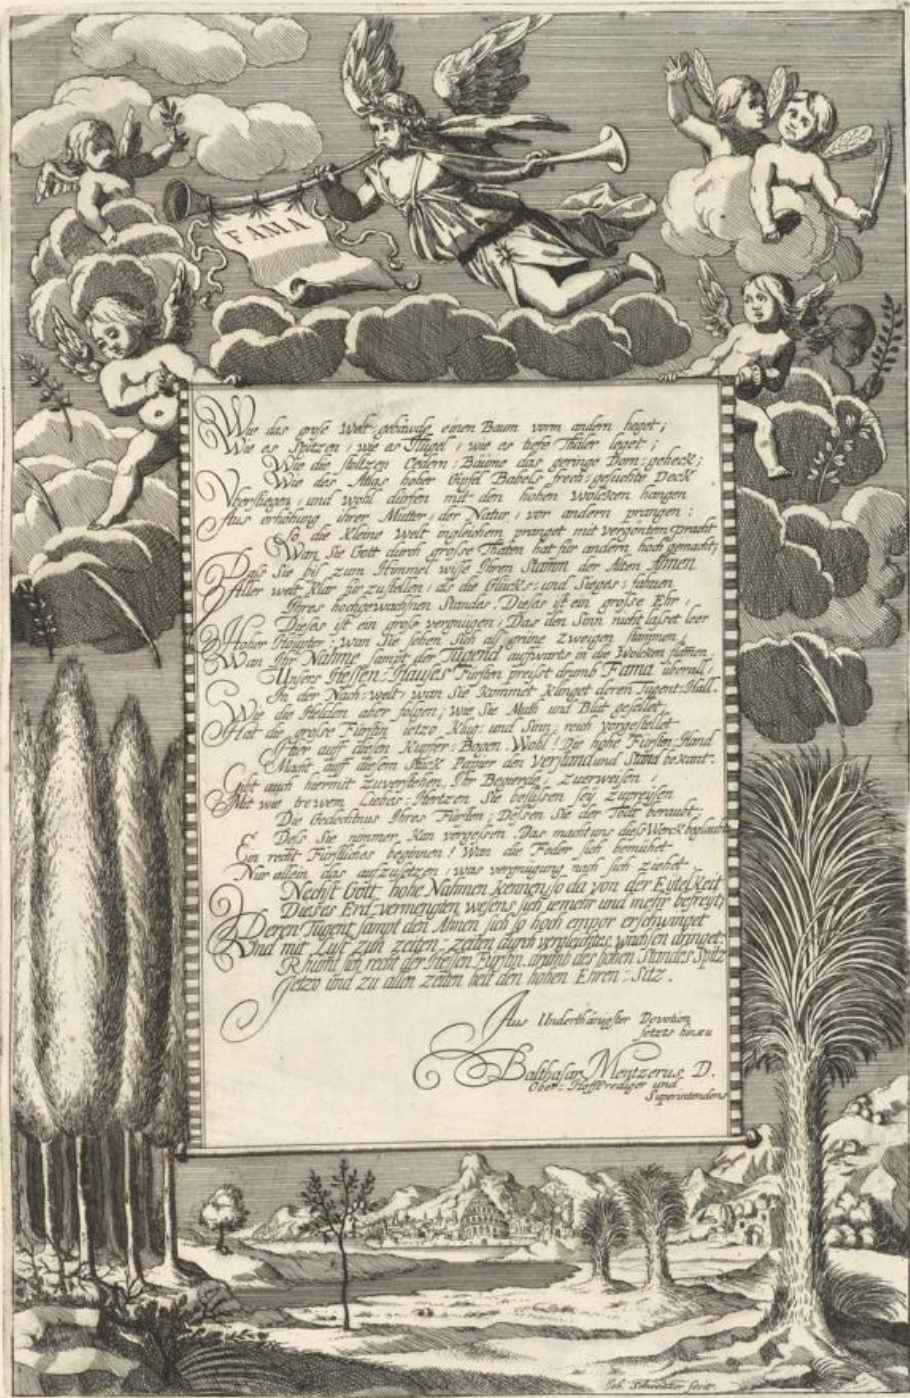 FAMA
Wie das große Welt-gebäwde einen Baum vorm andern heget;
Wie es Spitzen, wie es Hügel, wie es tieffe Thäler leget;
Wie die stoltzen Cedern-Bäume das geringe Dorn-geheck;
Wie des Atlas hoher Gipfel Babels frech-gesuchte Deck
Ubersteigen, und wohl dürfen mit den hohen Wolcken hangen
Aus erhöhung ihrer Mutter, der Natur, vor andern prangen:
So die Kleine Welt ingleichem pranget mit vergöntem pracht
Wan Sie Gott durch große Thaten hat für andern hoch gemacht;
Daß Sie biß zum Himmel wiße Ihren Stamm der Alten Ahnen
Aller welt Klar für zustellen, als die Glücks- und Sieges-fahnen
Ihres hochgewachsnen Standes. Dieses ist ein große Ehr,
Dieses ist ein groß vergnügen, Das den Sinn nicht laßet leer
Hoher Häupter, wan Sie sehen Sich als grüne zweigen stammen,
Wan Ihr Nahme sampt der Tugend auffwarts in die Wolcken flamen.
Unsers Hessen-Hauses Fürsten preißt drumb Fama überall,
In der Nach-welt, wan Sie kommet Klinget deren Tugent-Hall.
Wie die Helden aber folgen; wie Sie Muth und Blut gesellet,
Hat die große Fürstin ietzo Klug- und Sinn-reich vorgestellet
Hier auff diesen Kupfer-Bogen. Wohl! Die hohe Fürsten-Hand
Macht auff diesem Stück Papier den Verstand und Stand bekant.
Gibt auch hiermit zuverstehen, Ihr Begierde, zuerweisen,
Mit wie trewem Liebes-Hertzen Sie beflißen sey zupreysen
Die Gedechtnus Ihres Fürsten; Deßen Sie der Todt beraubt;
Deß Sie nimmer Kan vergeßen Das macht uns dieß Werck
Ein recht Fürstliches beginnen! Wan die Feder sich bemühet
Nur allein das aufzusetzen, was vergnügung nach sich ziehet
Nechst Gott hohe Nahmen Kennen, so da von der Eytelkeit
Dieses Erd-vermengten wesens sich iemehr und mehr befreyt;
Deren Tugent sampt den Ahnen sich so hoch empor erschwinget
Und mit Lust zun zeiten-zeiten durch wachsen dringet:
Rhümt sich recht der Heßen Fürstin, drumb des hohen Standes Spitz
Jetzo und zu allen zeiten helt den hohen Ehren-Sitz.
Aus Underthänigster Devotion
setzts hinzu
Balthasar Mentzerus D.
Ober-Hoffprediger und
Superintendens
Joh. Schweitzer fecit